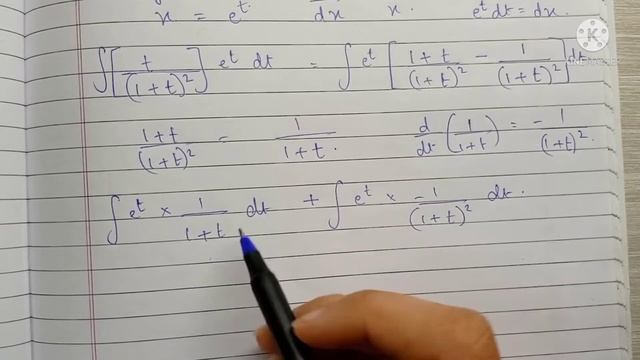 x = e^t dx x. e^t dt = dx.
∫[t/(1+t)²] e^t dt = ∫ e^t [(1+t)/(1+t)² - 1/(1+t)²] dt
(1+t)/(1+t)² = 1/(1+t). d/dt (1/(1+t)) = -1/(1+t)².
∫ e^t × 1/(1+t) dt + ∫ e^t × -1/(1+t)² dt.